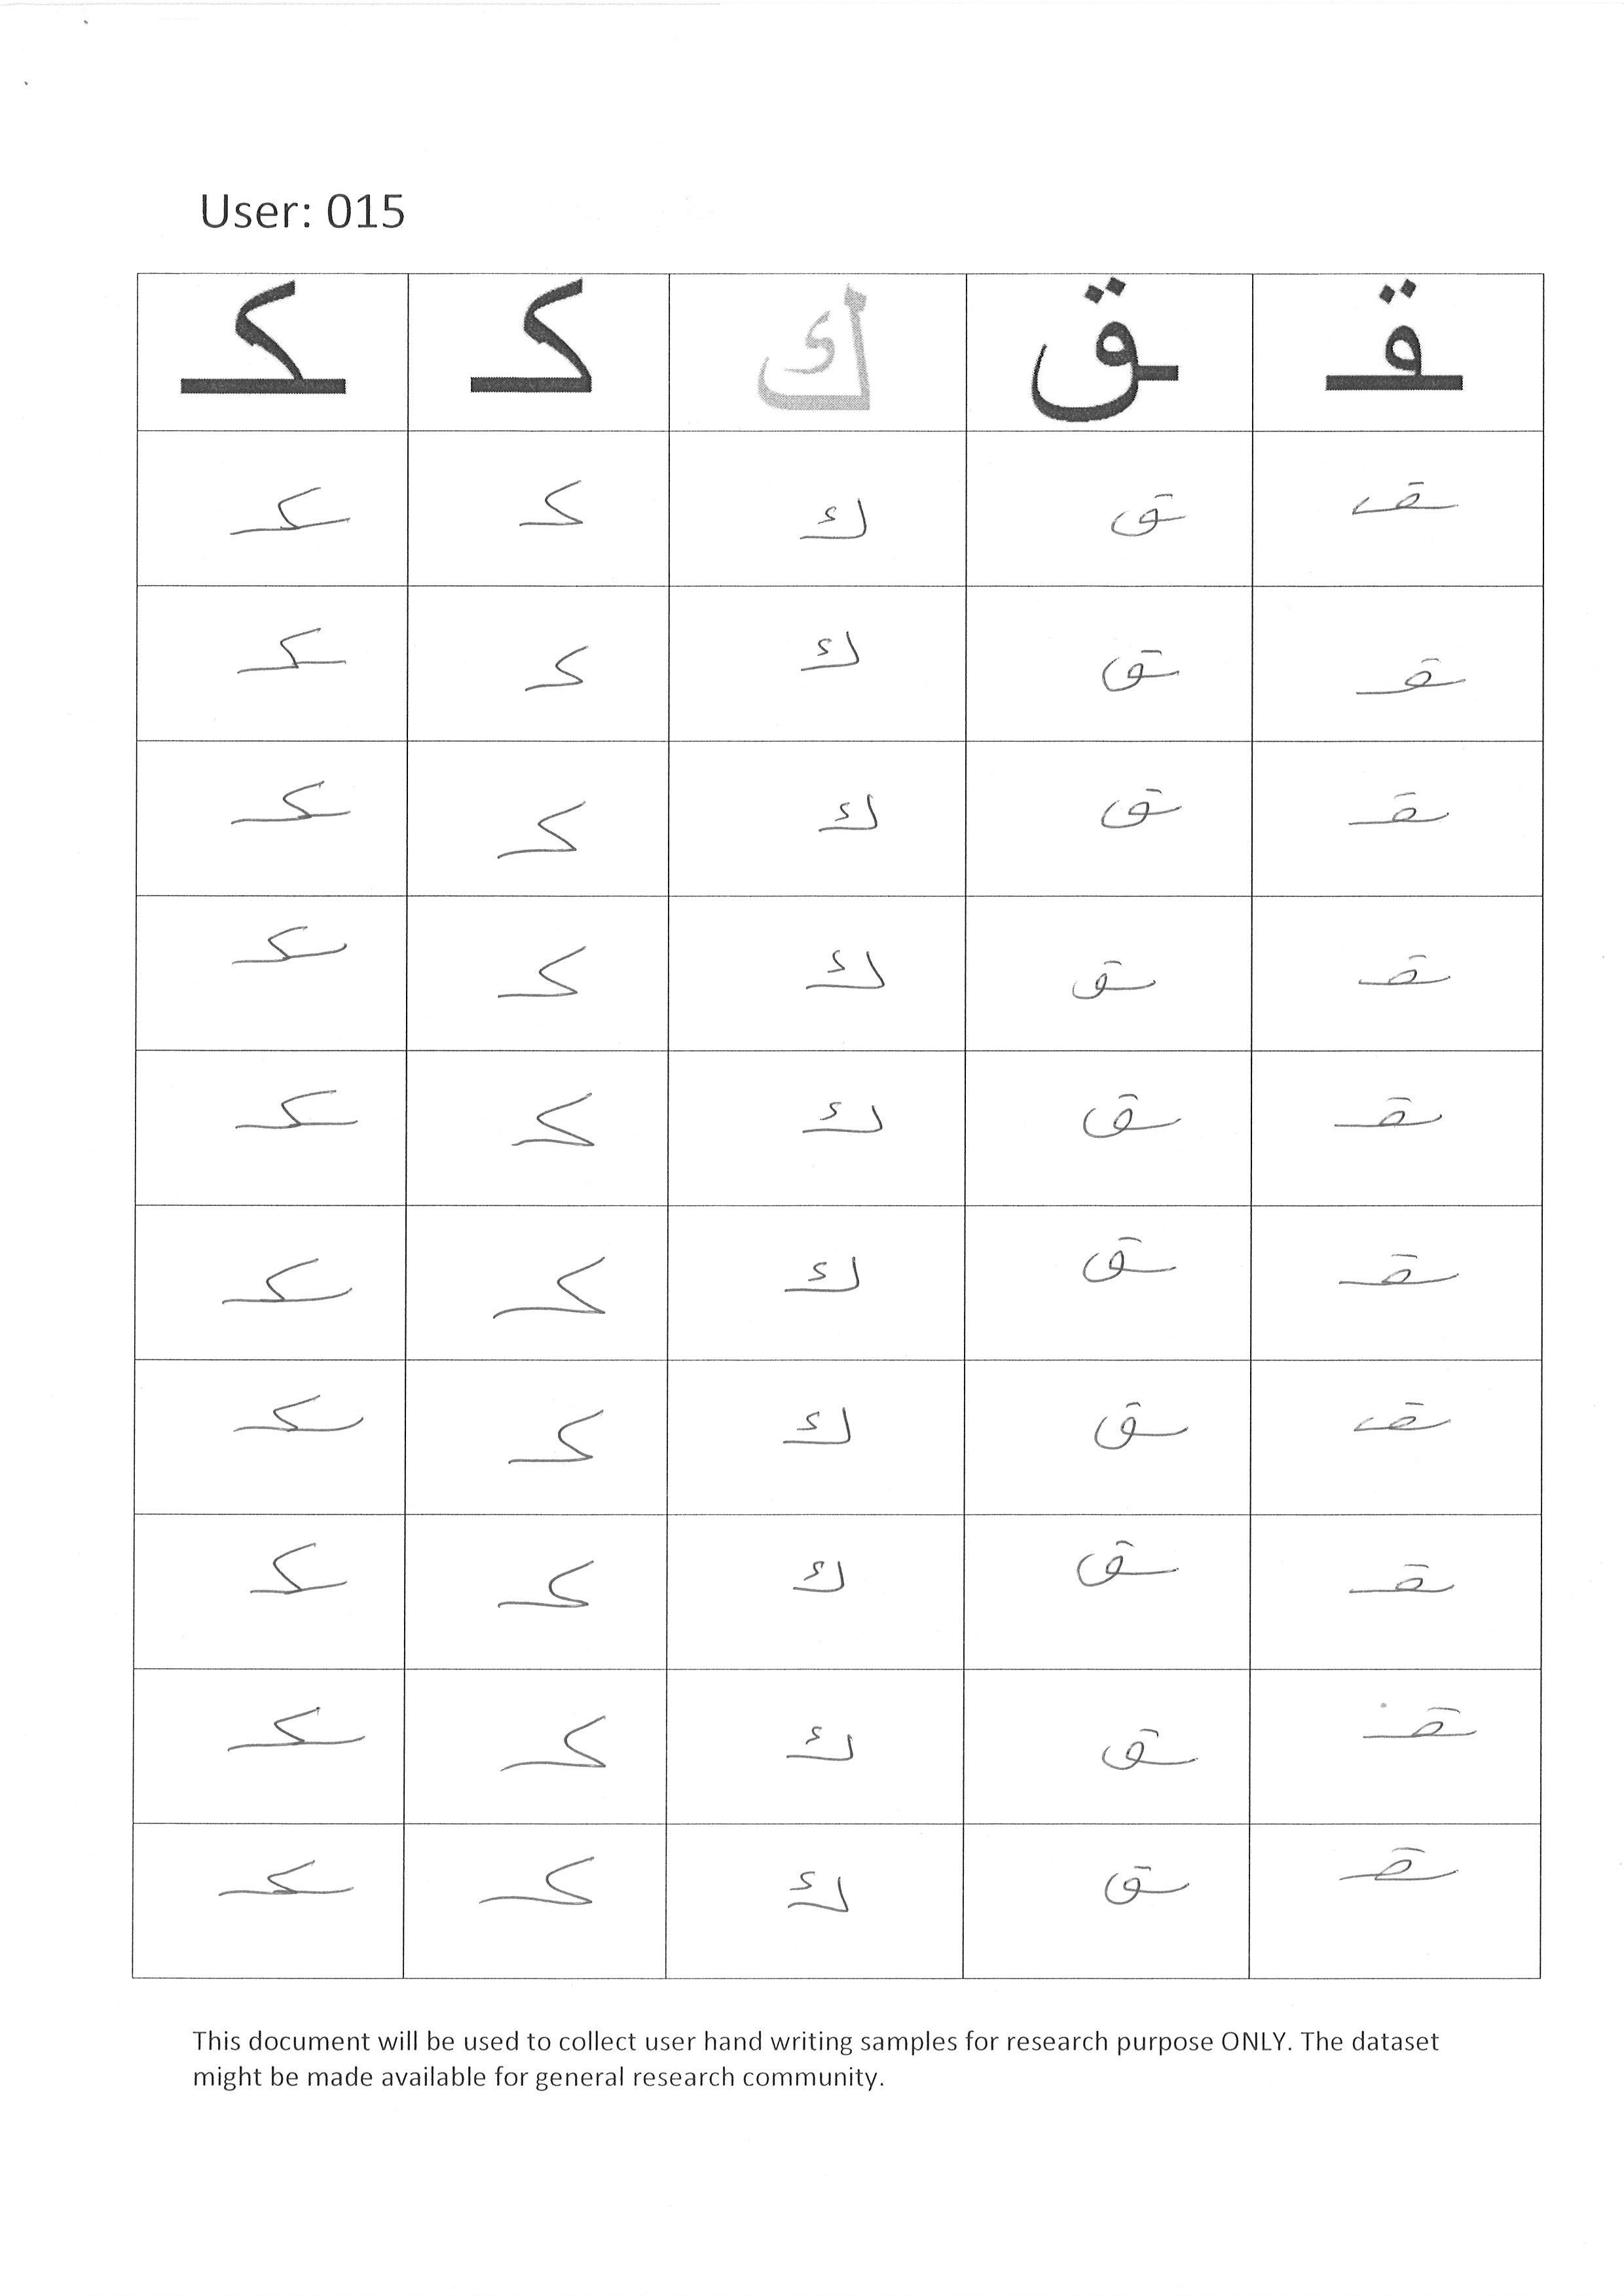 User: 015
ـقـ ـق ك كـ ـكـ
ـقـ ـق ك كـ ـكـ
ـقـ ـق ك كـ ـكـ
ـقـ ـق ك كـ ـكـ
ـقـ ـق ك كـ ـكـ
ـقـ ـق ك كـ ـكـ
ـقـ ـق ك كـ ـكـ
ـقـ ـق ك كـ ـكـ
ـقـ ـق ك كـ ـكـ
ـقـ ـق ك كـ ـكـ
ـقـ ـق ك كـ ـكـ
This document will be used to collect user hand writing samples for research purpose ONLY. The dataset
might be made available for general research community.